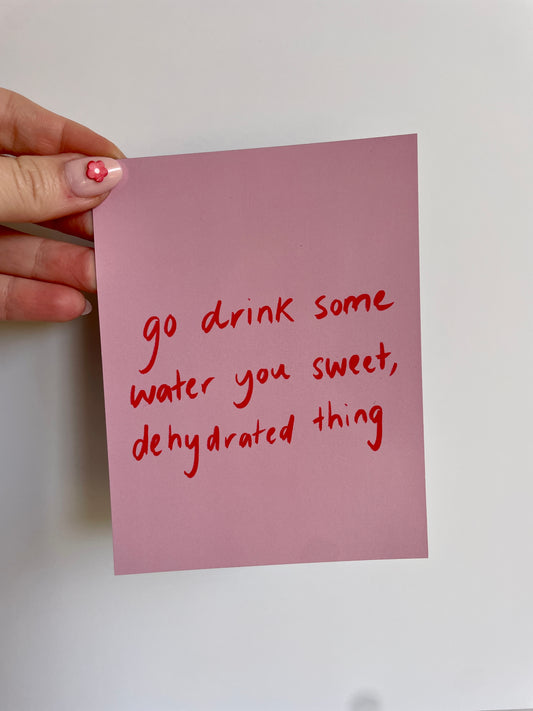 go drink some
water you sweet,
dehydrated thing